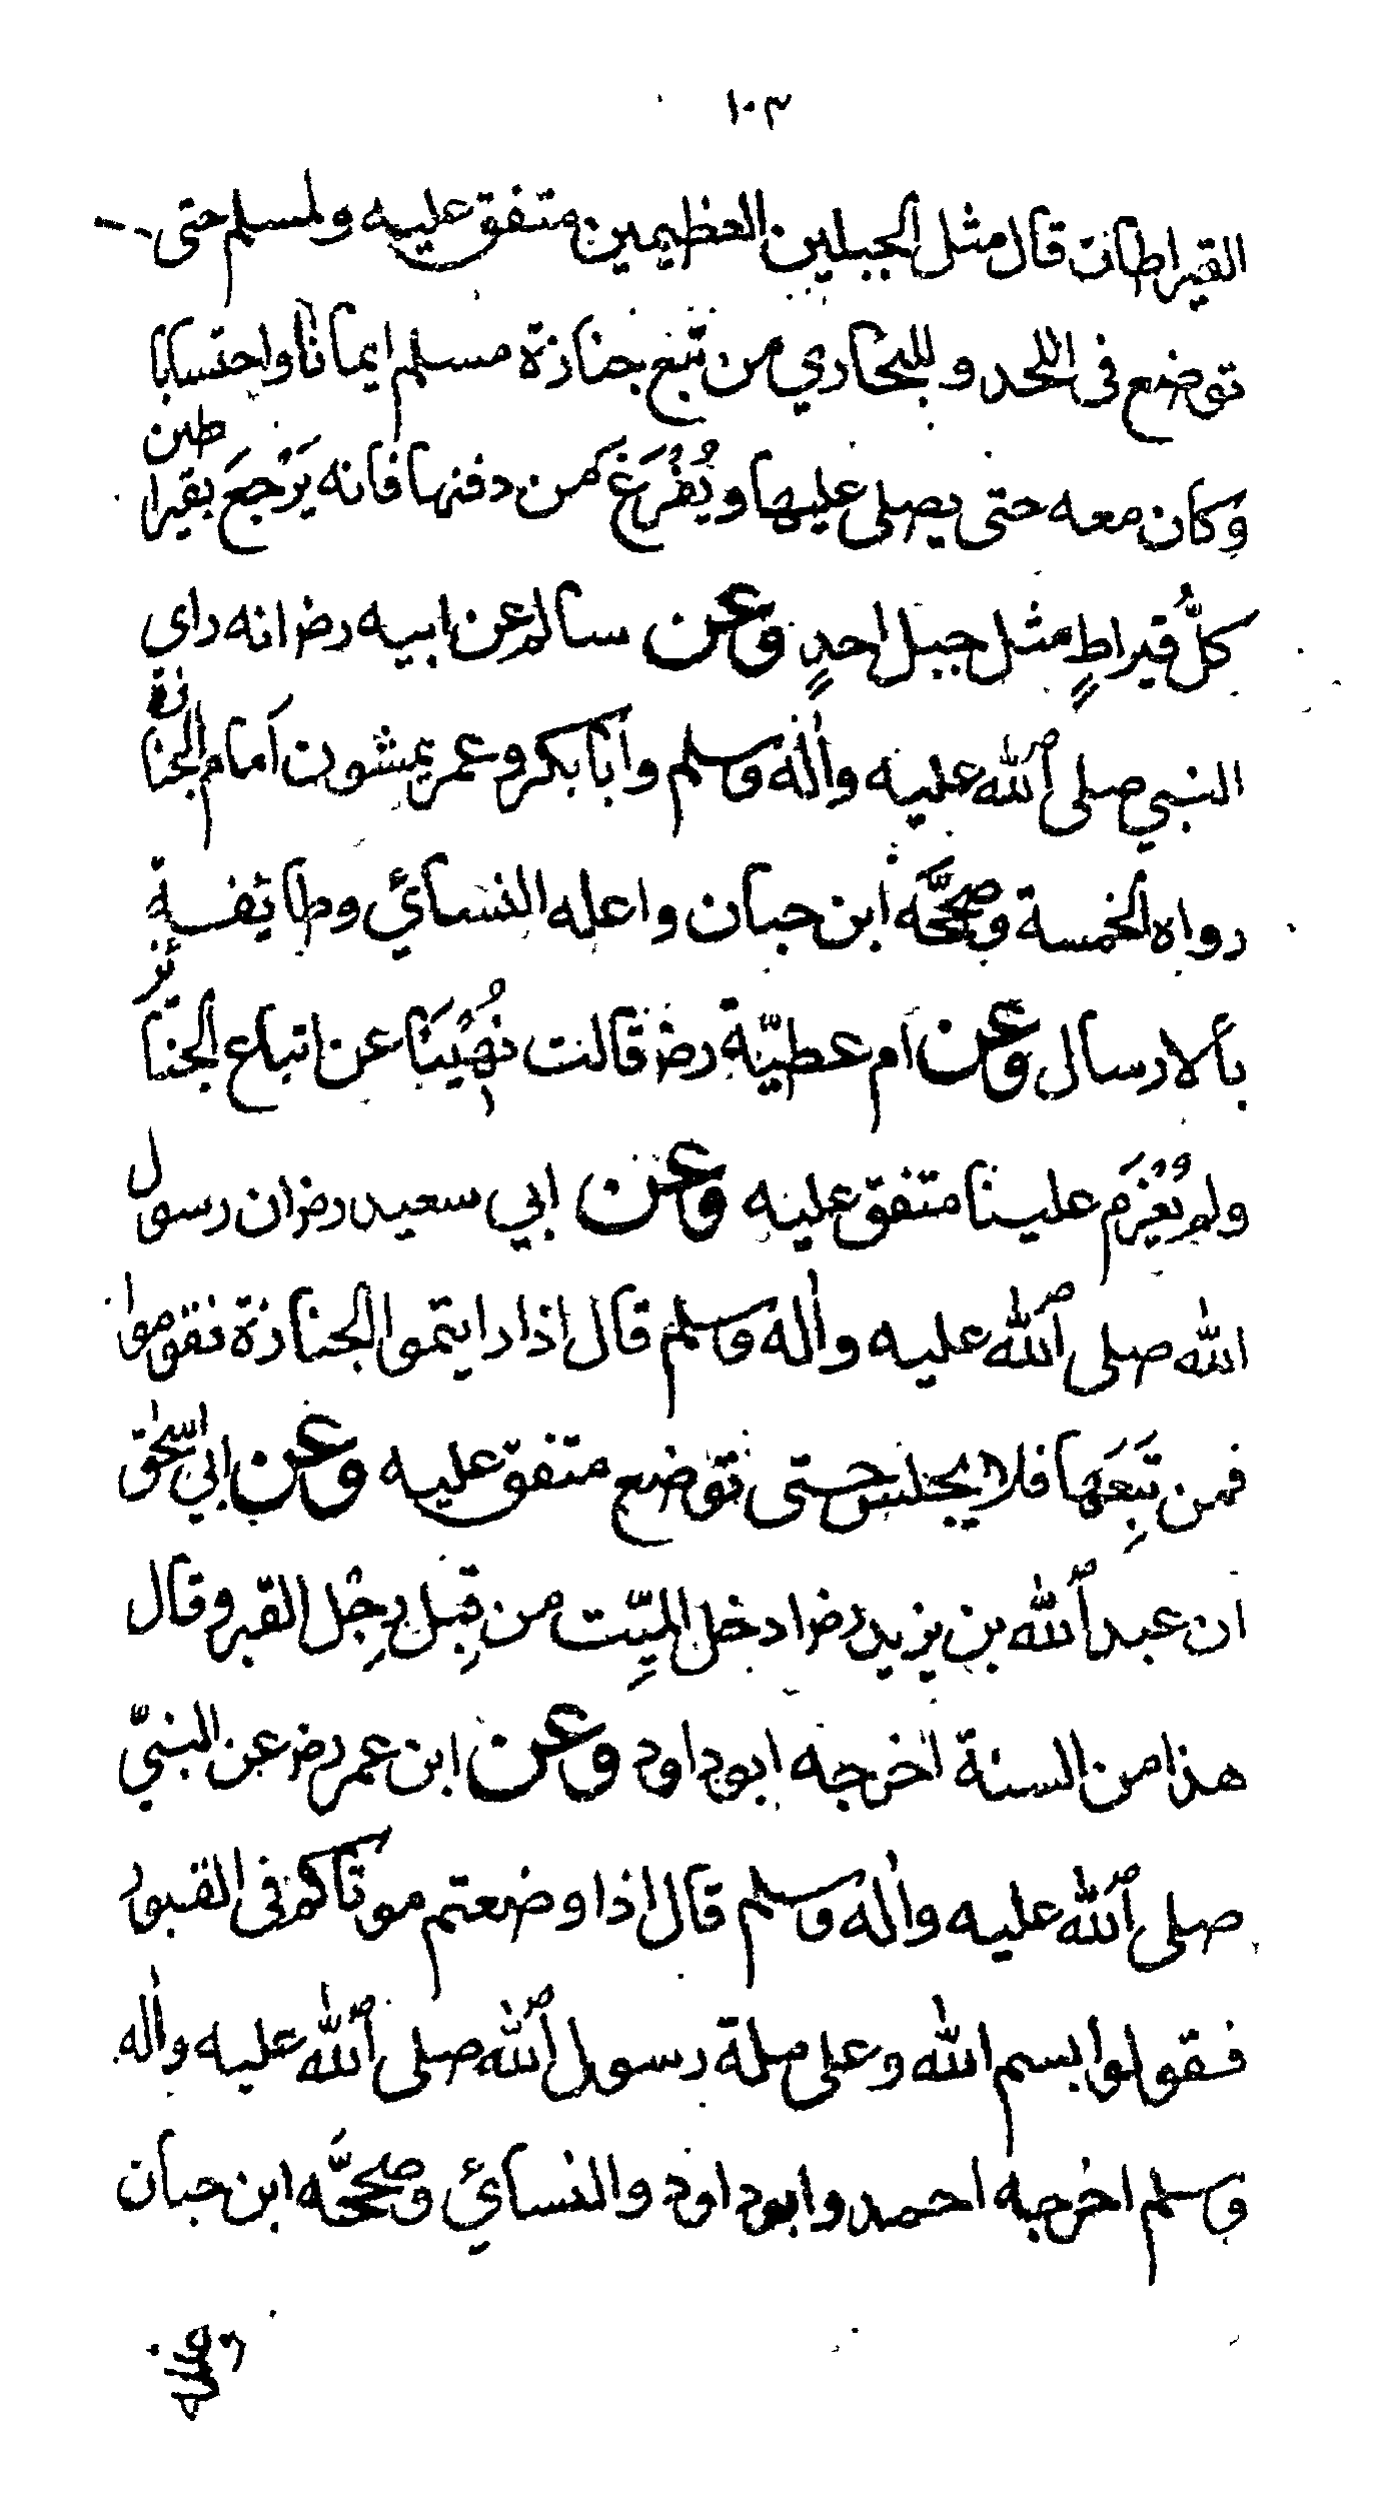 ١٠٣
القيراطان قال مثل الجبلين العظيمين متفق عليه ولمسلم حتى
توضع فى اللحد وللبخاري من تبع جنازة مسلم ايمانا واحتسابا
وكان معه حتى يصلى عليها ويُفْرَغَ من دفنها فانه يَرْجِعَ بقيراطين
كلُّ قيراطٍ مثل جبل احدٍ وعن سالم عن ابيه رضـ انه راي
النبي صلى الله عليه واٰله وسلم وابا بكر وعمر يمشون اَمام الجنازة
رواه الخمسة وصحَّحَه ابن حبان واعله النسائي وطائفة
بالارسال وعن ام عطيّة رضـ قالت نُهِيْنَا عن اتباع الجنائز
ولم يُعْزَم علينا متفق عليه وعن ابي سعيد رضـ ان رسول
الله صلى الله عليه واٰله وسلم قال اذا رايتموا الجنازة فقوموا
فمن تَبِعَها فلا يجلس حتى توضع متفق عليه وعن ابي اسحٰق
ان عبد الله بن يزيد رضـ ادخل الميِّت من قِبل رِجْل القبر وقال
هذا من السنة اخرجه ابوداود وعن ابن عمر رضـ عن النبيّ
صلى الله عليه واٰله وسلم قال اذا وضعتم موتاكم فى القبور
فقولوا بسم الله وعلى ملة رسول الله صلى الله عليه واٰله
وسلم اخرجه احمد وابوداود والنسائي وصحَّحَه ابن حبان